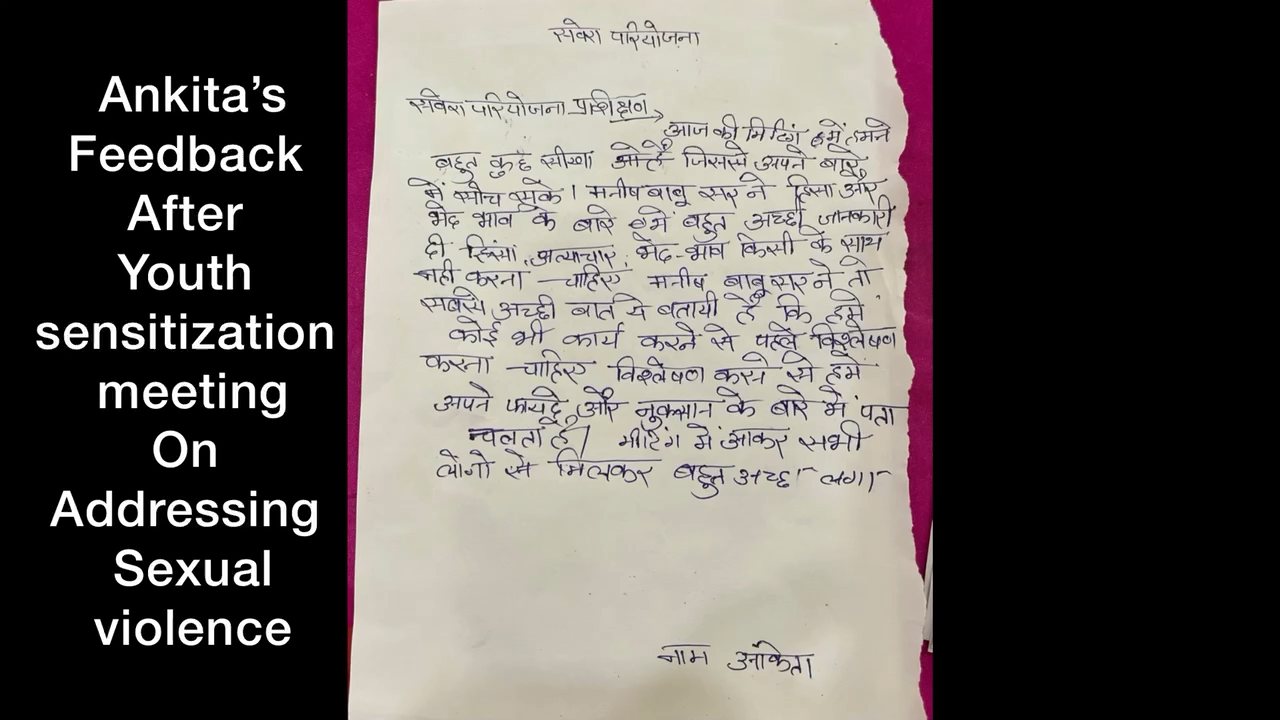 Ankita’s
Feedback
After
Youth
sensitization
meeting
On
Addressing
Sexual
violence
सवेरा परियोजना
सवेरा परियोजना प्राशीक्षण
आज की मिटिंग हमें हमने
बहुत कुछ सीखा जिससे अपने बारे
में सोच सके। मनीष बाबू सर ने हिसा और
भेद भाव के बारे में बहुत अच्छी जानकारी
दी हिंसा, अत्याचार, भेद-भाव किसी के साथ
नही करना चाहिए मनीष बाबू सर ने तो
सबसे अच्छी बात ये बतायी है कि हमे
कोई भी कार्य करने से पहले विश्लेषण
करना चाहिए विश्लेषण करने से हमे
अपने फायदे और नुकसान के बारे में पता
चलता है। मीटिंग में आकर सभी
लोगो से मिलकर बहुत अच्छा लगा
नाम अंकिता